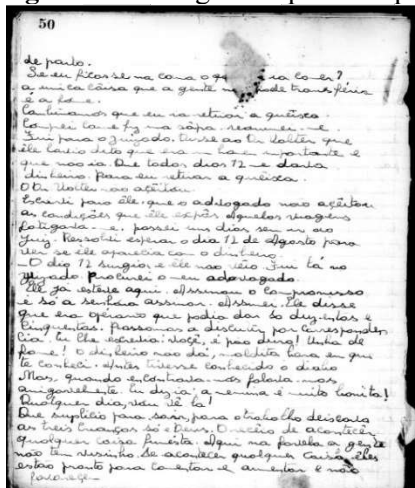 50
de parto.
Se eu ficasse na cama o q ia comer?
a unica cousa que a gente não pode transferir
é a fome.
Combinamos que eu ia retirar a queixa.
Comprei carne e fiz uma sôpa.
Fui para o Juizado. disse ao Dr Walter que
êle havia dito que era um homem importante e
que não ia. Que todos dias 12 me daria
dinheiro. Para eu retirar a queixa.
O Dr Walter não açêitou.
Escrevi para êle. que o advogado não açêitou
as condições que êle expôs Aquelas viagens
fatigava-me. passei uns dias sem ir ao
Juiz. Ressolvi esperar o dia 12 de Agosto para
ver se êle aparecia com o dinheiro.
—O dia 12 surgiu e êle não vêio. Fui lá no
Juizado. Procurei o meu advogado.
Ele já esteve aqui. Assinou o compromisso
é só a senhora assinar. Assinei. Ele disse
que era operario que podia dar só duzentos e
cinquentas. Passamos a discutir por Corresponden
cia. Eu lhe escrevia: Voçê, é pão duro! Unha de
fome! O dinheiro não dá, maldita hora em que
te conheci. Antes tivesse conhecido o diabo
Mas, quando encontrava-nos falava-nos
amigavelmente. Eu dizia: a menina é muito bonita!
Qualquer dia, vou vê la!
Que suplicio para sair, para o trabalho deixava
as três crianças só e Deus. O recêio de acontecêr
qualquer coisa funesta. Aqui na favela a gente
não tem visinho. Se acontecer qualquer Coisa, êles
estão pronto para comentar e aumentar e não
favorecer